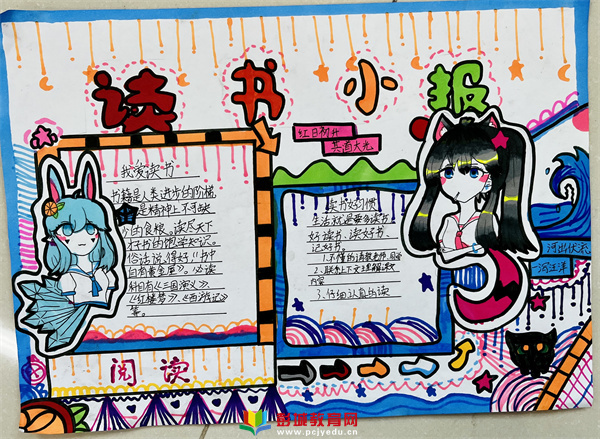 读书小报
我爱读书
书籍是人类进步的阶梯
是精神上不可缺
的食粮。读尽天下
好书的饱尝知识。
俗话说得好《书中
自有黄金屋》。必读
科目有《三国演义》、
《红楼梦》、《西游记》
等。
阅读
红日初升
其道大光
读书好习惯
生活就是要多读书
好读书、读好书
记好书。
1、不懂的请教老师
2、联系上下文理解
内容
3、仔细认真出读
河出伏流
一泻汪洋
彭城教育网
www.pcjyedu.cn